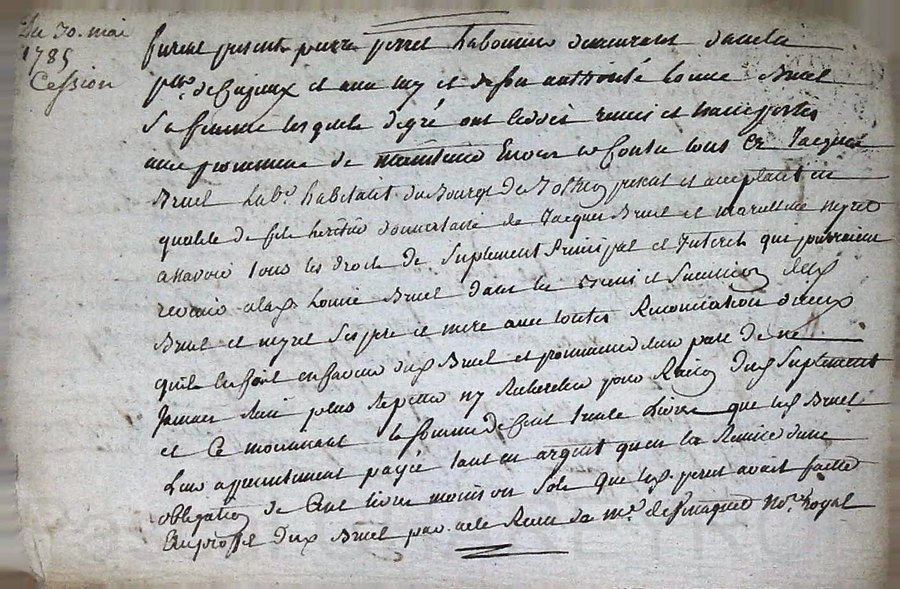 Du 30. mai
1785
Cession
furent present pierre perret laboureur demeurant dans la
psse. de Cujeux et avec luy et de son authorité Louise Bruel
Sa femme lesquels de gré ont cedés remis et transportés
avec promesse de maintenir Envers et Contre tous Er Jacques
Bruel labr. habitant du Bourg de présent et acceptant en
qualité de fils heritier donnataire de Jacques Bruel et neyret
assavoir tous les droits de Suplement Principal et Interets qui pourraient
revenir a lad. Louise Bruel dans les biens et Succession desd.
Bruel et neyret Ses pere et mere avec toutes Renonciation dud.
qu'ils en font en faveur dud. Bruel et promesse de leur part de ne
Jamais rien plus repetter ny Rechercher pour Raison dud. Suplement
et Ce moyennant la somme de Cent trente Livres que led. Bruel
Leur a presentement payée tant en argent qu'en la Remise d'une
obligation de Cent livres moins un Sols que led. perret avait faitte
Au profit dud. Bruel par acte Recu de Me. desmaguet Nore. royal